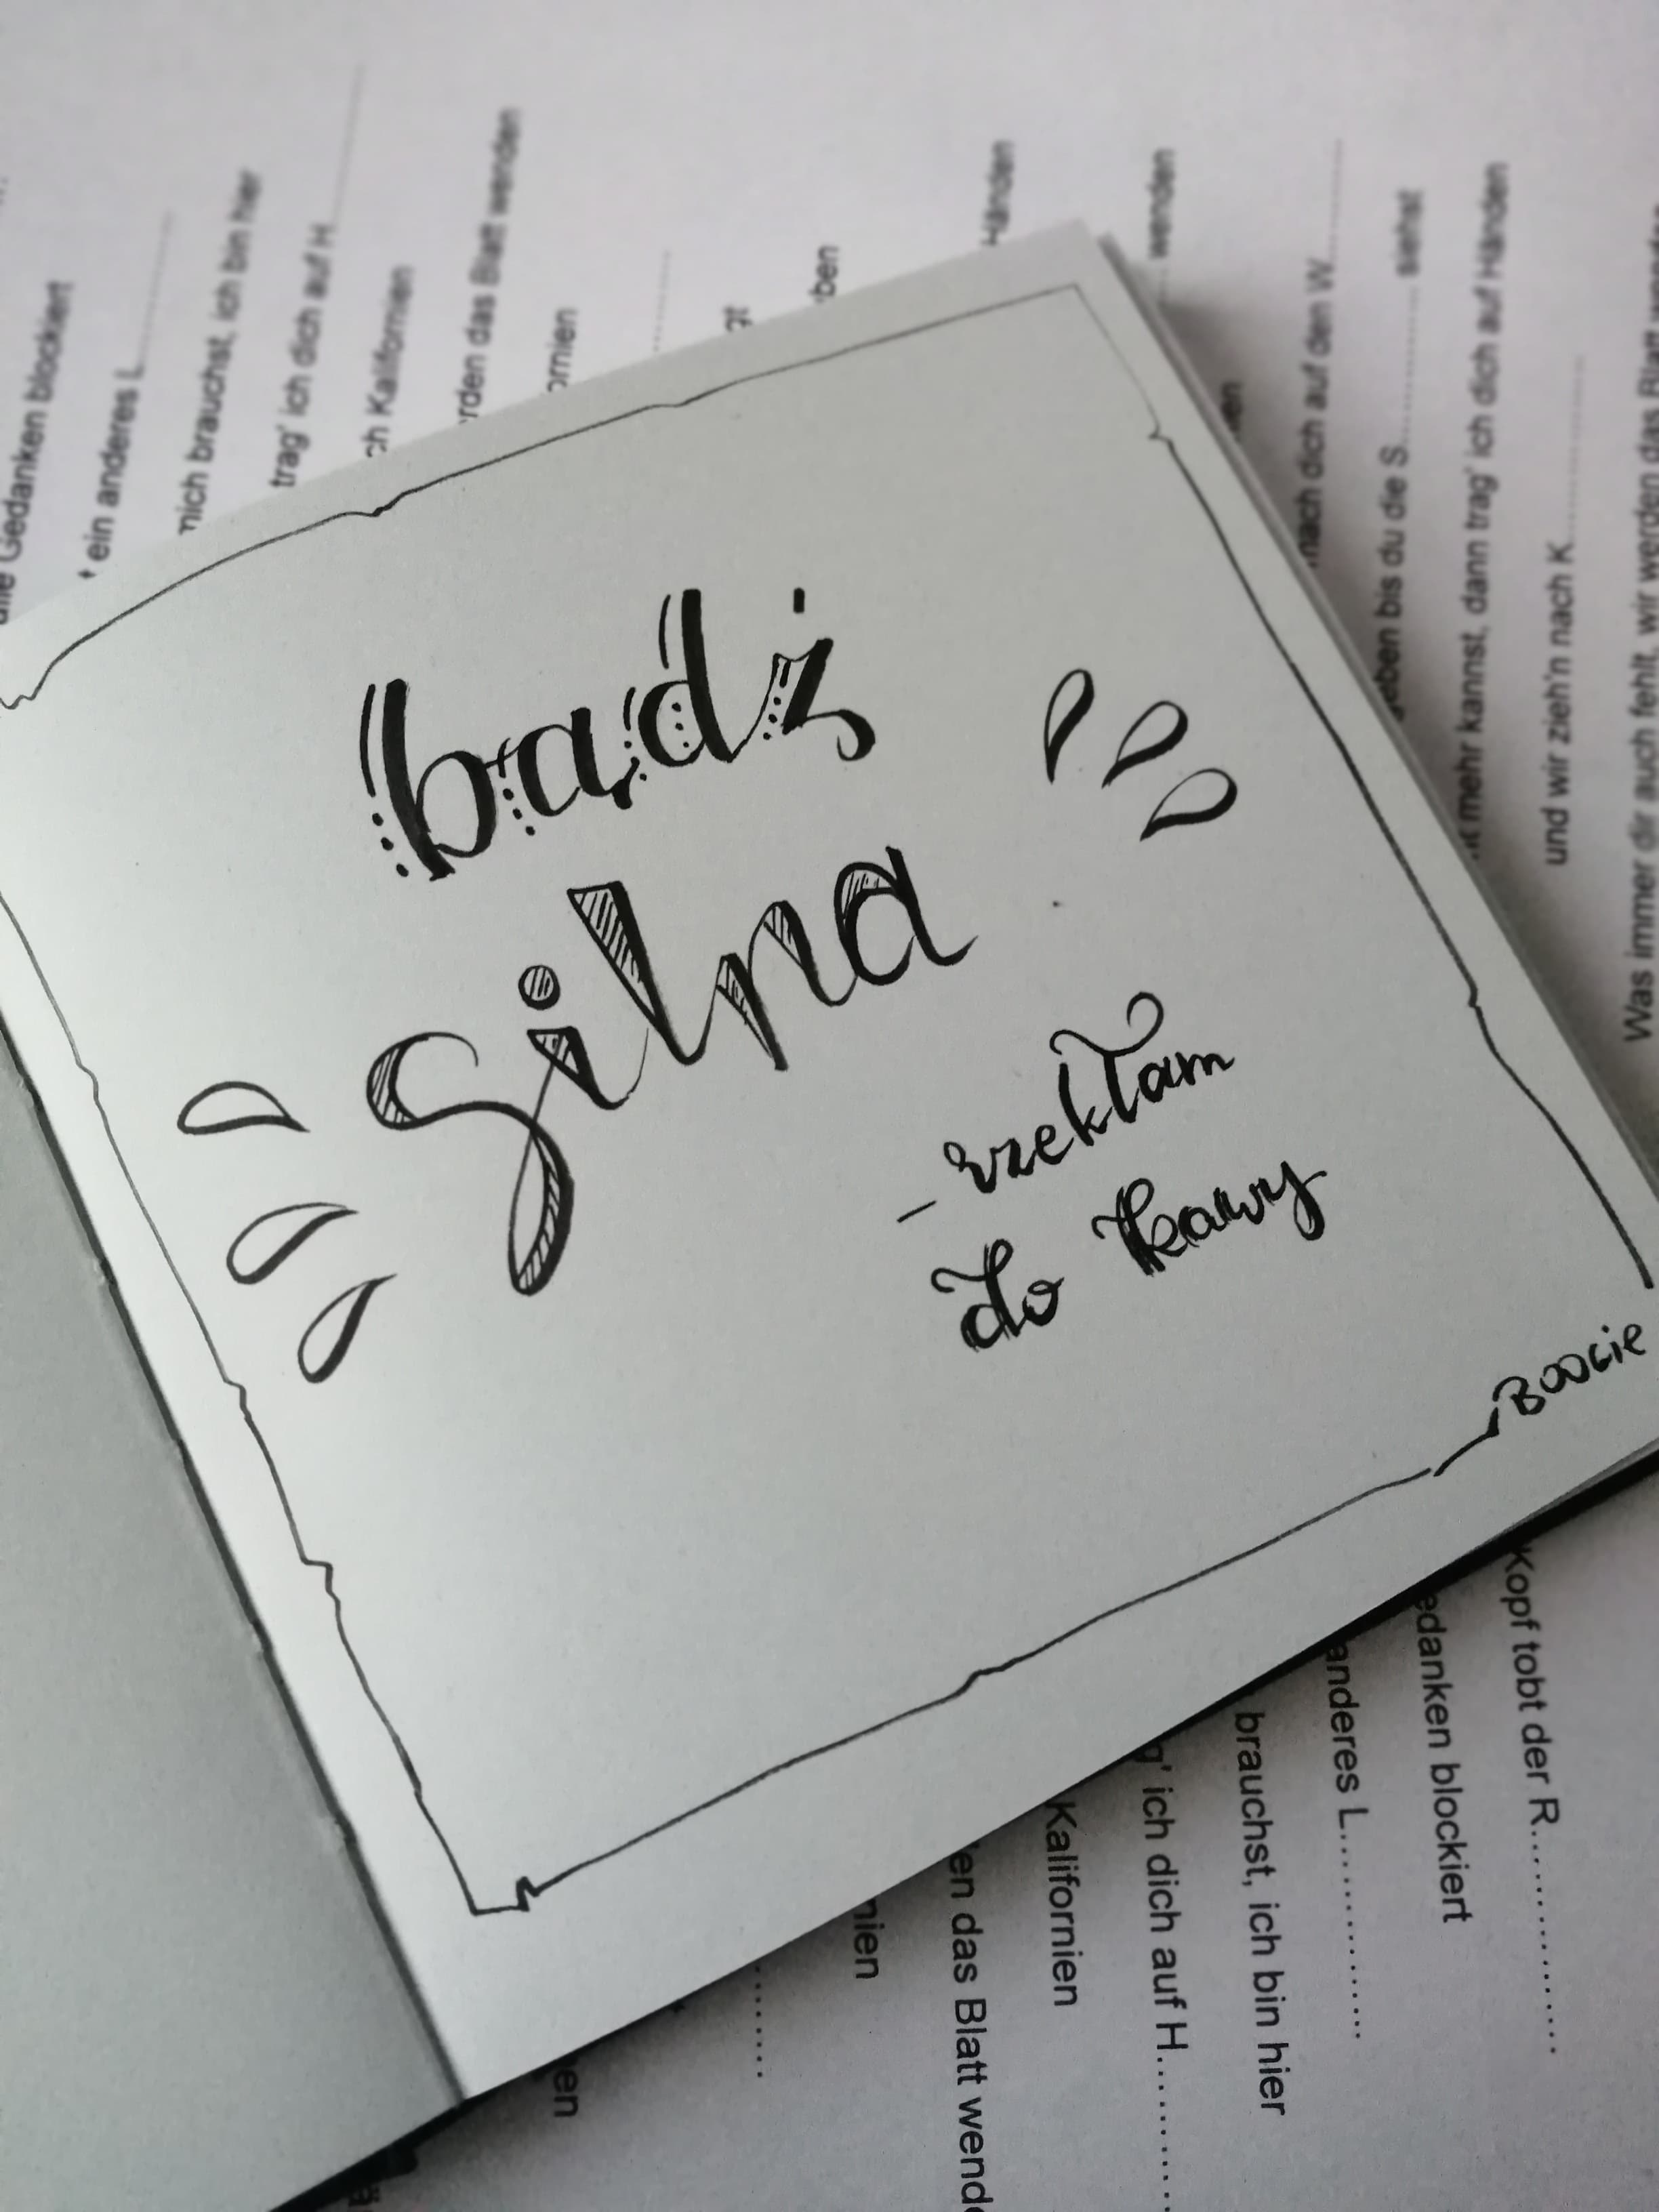 bądź
silna
- rzekłam
do kawy
BOOGIE
Gedanken blockiert
ein anderes L
mich brauchst, ich bin hier
trag' ich dich auf H
ch Kalifornien
rden das Blatt wenden
ornien
ben
Händen
wenden
nach dich auf den W
eben bis du die S siehst
mehr kannst, dann trag' ich dich auf Händen
und wir zieh'n nach K
Was immer dir auch fehlt, wir werden das Blatt wenden
Kopf tobt der R
edanken blockiert
anderes L
brauchst, ich bin hier
g' ich dich auf H
Kalifornien
en das Blatt wend
nien
en